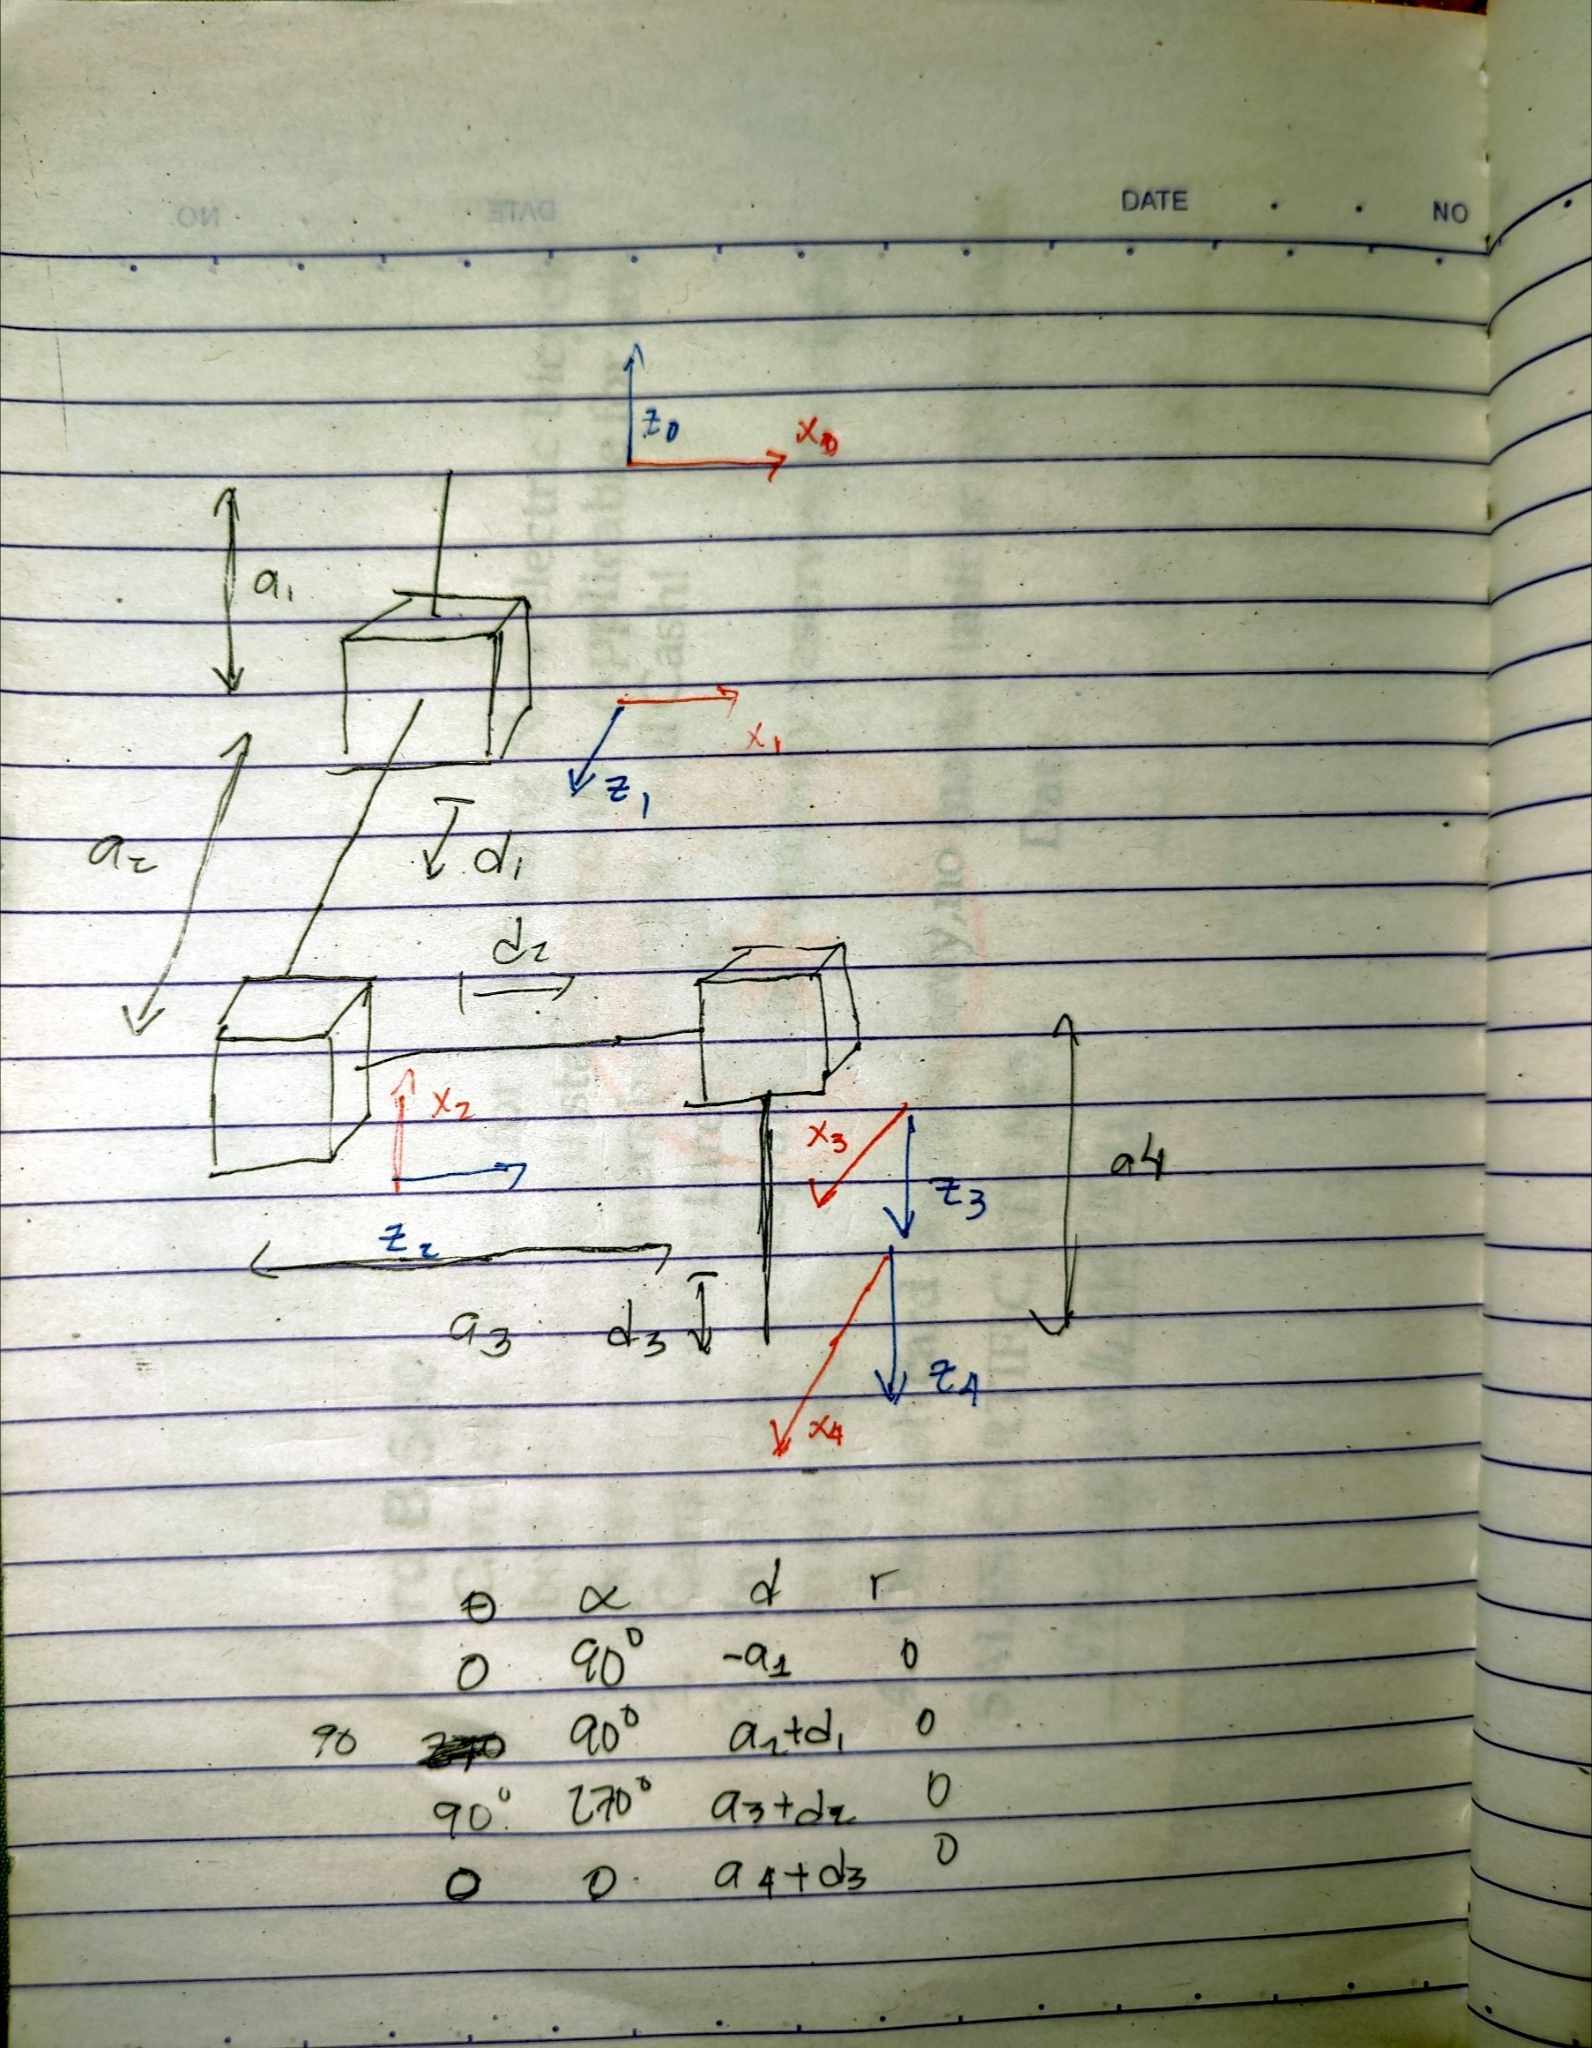 DATE NO
z0 x0
a1
x1
z1
a2 d1
d2
x2 x3 a4
z3
z2
a3 d3
z4
x4
θ α d r
0 90° -a1 0
90 90° a2+d1 0
90° 270° a3+d2 0
0 0 a4+d3 0